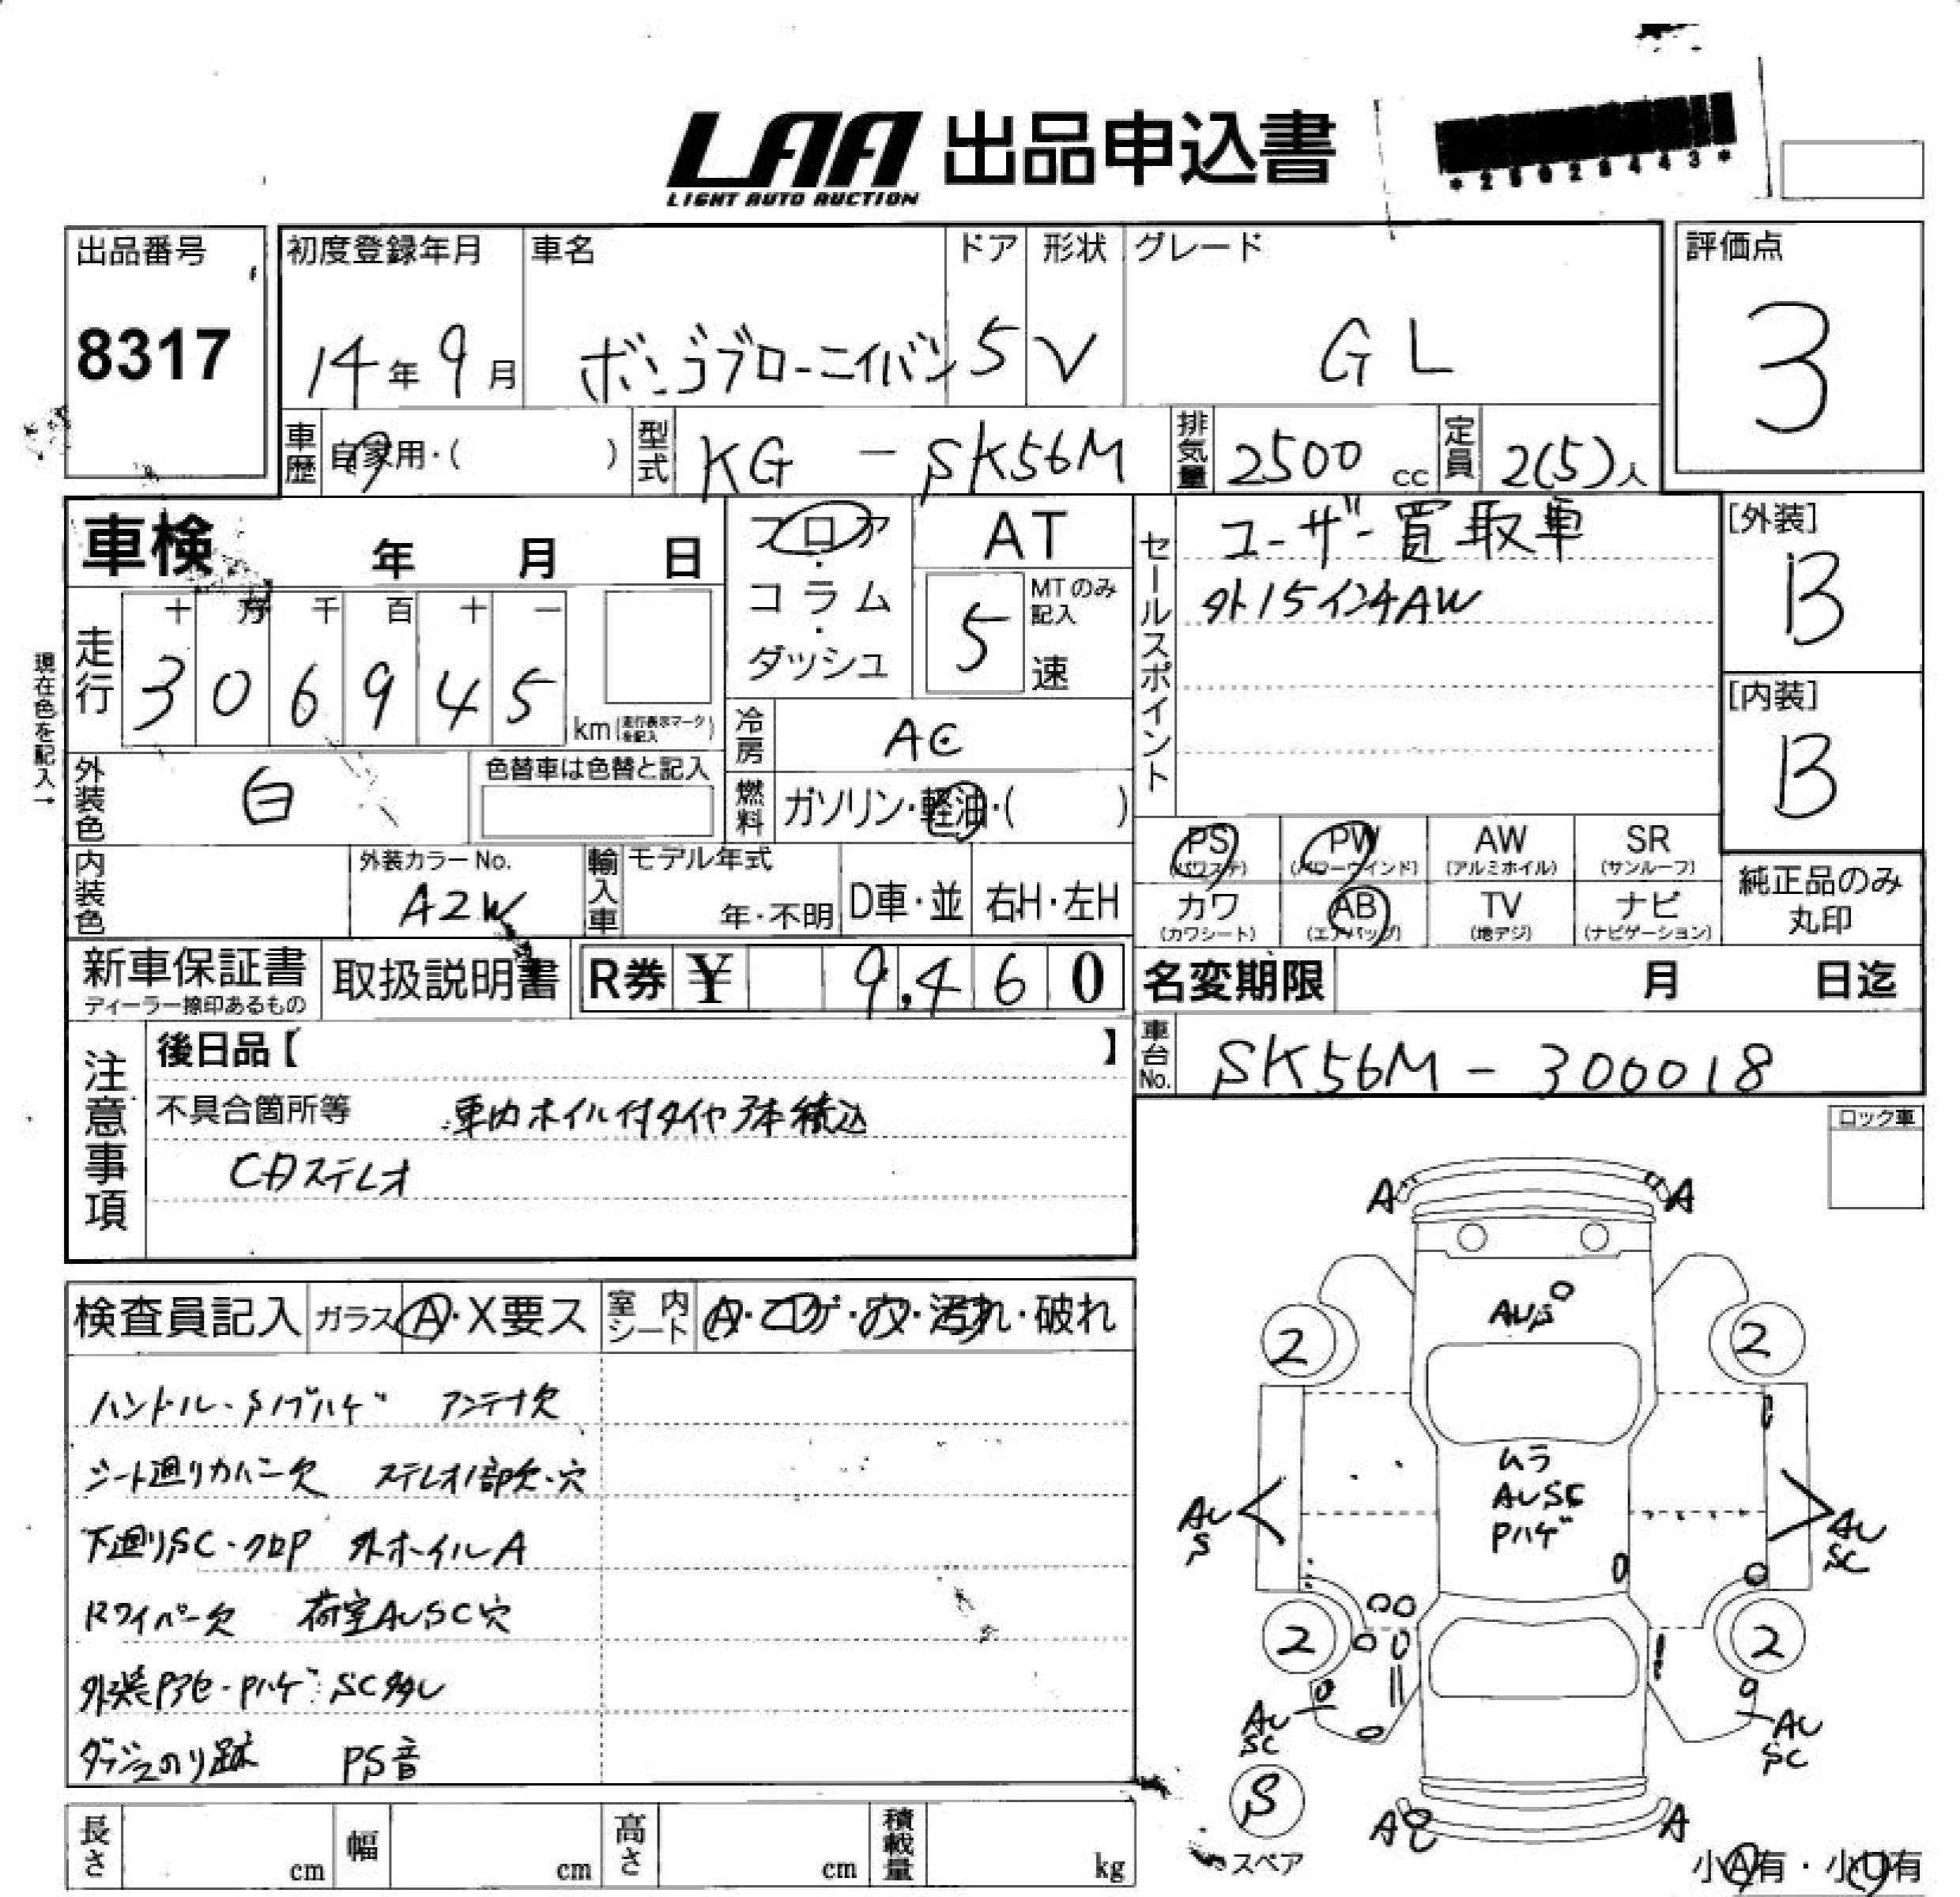 LAA 出品申込書
LIGHT AUTO AUCTION
*25028443*
出品番号
8317
初度登録年月
14年 9月
車名
ボンゴブローニイバン
ドア
5
形状
V
グレード
GL
評価点
3
車歴 自家用・( )
型式 KG - SK56M
排気量 2500 cc
定員 2(5)人
車検 年 月 日
フロア・コラム・ダッシュ
AT
5 MTのみ記入 速
セールスポイント
ユーザー買取車
外15インチAW
[外装]
B
[内装]
B
現在色を記入→
走行
十 万 千 百 十 一
3 0 6 9 4 5 km(走行表示マークを記入)
冷房 AC
燃料 ガソリン・軽油・( )
外装色 白
色替車は色替と記入
内装色
外装カラーNo.
A2W
輸入車
モデル年式
年・不明
D車・並
右H・左H
PS (パワステ)
PW (パワーウインド)
AW (アルミホイル)
SR (サンルーフ)
カワ (カワシート)
AB (エアバッグ)
TV (地デジ)
ナビ (ナビゲーション)
純正品のみ丸印
新車保証書
ディーラー捺印あるもの
取扱説明書
R券 ¥ 9,460
名変期限 月 日迄
車台No. SK56M - 300018
注意事項
後日品【 】
不具合箇所等 車内ホイル付タイヤ3本積込
CDステレオ
ロック車
検査員記入
ガラス A・X要ス
室内シート A・コゲ・穴・汚れ・破れ
ハンドル・Sノブハゲ アンテナ欠
シート廻りカバー欠 ステレオ1部欠・穴
下廻りSC・クロP 外ホイルA
Rワイパー欠 荷室AUSC穴
外装Pアセ・Pハゲ SC多し
ダッシュのり跡 PS音
A A
AUS
2 2
ムラ
AUSC
Pハゲ
AU
S
AU
SC
2 2
AU
SC
AU
SC
S
スペア
A A
小A有・小U有
長さ cm
幅 cm
高さ cm
積載量 kg